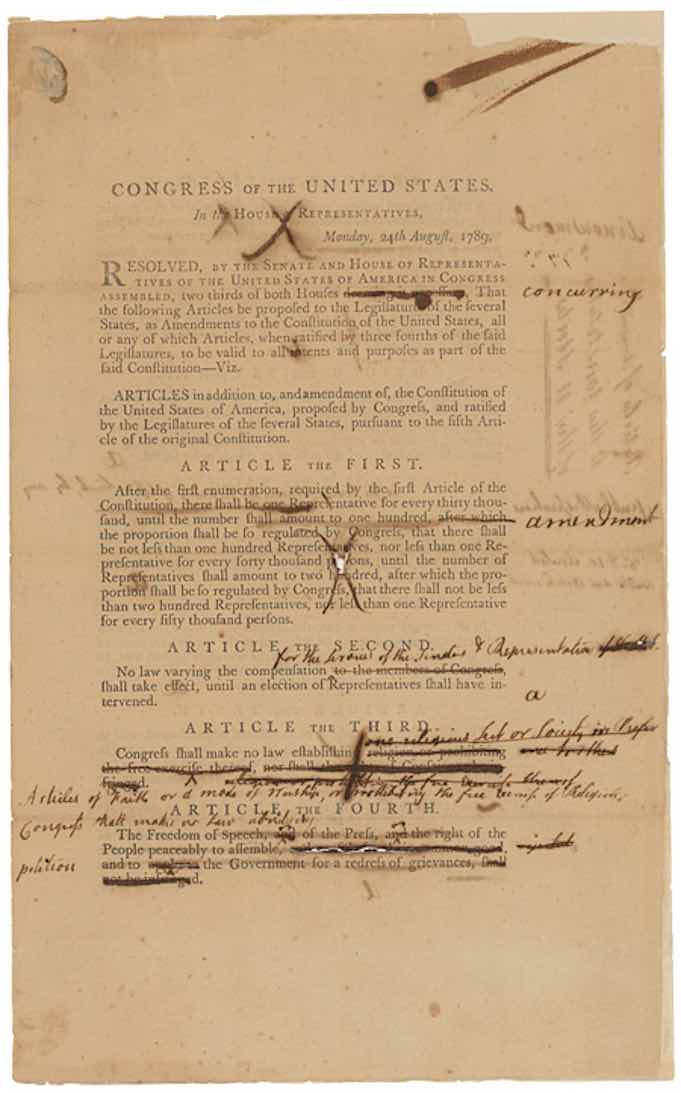 CONGRESS OF THE UNITED STATES.
In the HOUSE of REPRESENTATIVES,
Monday, 24th Auguſt, 1789,
RESOLVED, BY THE SENATE AND HOUSE OF REPRESENTA-
TIVES OF THE UNITED STATES OF AMERICA IN CONGRESS
ASSEMBLED, two thirds of both Houſes That
concurring
the following Articles be propoſed to the Legiſlatures of the ſeveral
States, as Amendments to the Conſtitution of the United States, all
or any of which Articles, when ratified by three fourths of the ſaid
Legiſlatures, to be valid to all intents and purpoſes as part of the
ſaid Conſtitution—Viz.
ARTICLES in addition to, and amendment of, the Conſtitution of
the United States of America, propoſed by Congreſs, and ratified
by the Legiſlatures of the ſeveral States, purſuant to the fifth Arti-
cle of the original Conſtitution.
ARTICLE THE FIRST.
After the firſt enumeration, required by the firſt Article of the
Conſtitution, there ſhall be one Repreſentative for every thirty thou-
ſand, until the number ſhall amount to one hundred, after which
amendment
the proportion ſhall be ſo regulated by Congreſs, that there ſhall
be not leſs than one hundred Repreſentatives, nor leſs than one Re-
preſentative for every forty thouſand perſons, until the number of
Repreſentatives ſhall amount to two hundred, after which the pro-
portion ſhall be ſo regulated by Congreſs, that there ſhall not be leſs
than two hundred Repreſentatives, nor leſs than one Repreſentative
for every fifty thouſand perſons.
ARTICLE THE SECOND.
for the ſervices of the Senators & Repreſentatives
No law varying the compenſation to the members of Congreſs,
ſhall take effect, until an election of Repreſentatives ſhall have in-
tervened.
a
ARTICLE THE THIRD.
one religious Sect or Society in Prefer
Congreſs ſhall make no law eſtabliſhing religion or prohibiting
ence to others
the free exerciſe thereof, nor ſhall the
fringed.
religion or prohibiting the free exercise thereof
Articles of Faith or a mode of Worship, or prohibiting the free exercise of Religion,
ARTICLE THE FOURTH.
Congreſs shall make no Law abridging
The Freedom of Speech, of the Preſs, and the right of the
People peaceably to aſſemble,
and to the Government for a redreſs of grievances, ſhall
petition
not be infringed.